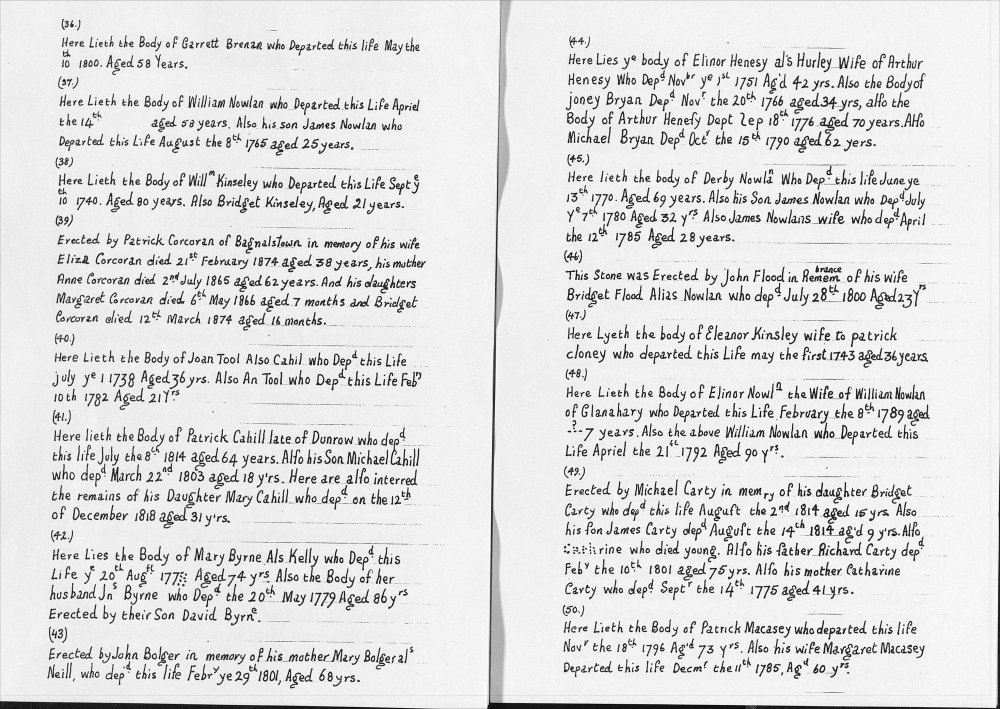 (36.)
Here Lieth the Body of Garrett Brenan who Departed this life May the
10th 1800. Aged 58 Years.
(37.)
Here Lieth the Body of William Nowlan who Departed this Life Apriel
the 14th aged 58 years. Also his son James Nowlan who
Departed this Life August the 8th 1765 aged 25 years.
(38)
Here Lieth the Body of Willm Kinseley who Departed this Life Sept ye
10th 1740. Aged 80 years. Also Bridget Kinseley, Aged 21 years.
(39)
Erected by Patrick Corcoran of Bagnalstown in memory of his wife
Eliza Corcoran died 21st February 1874 aged 38 years, his mother
Anne Corcoran died 2nd July 1865 aged 62 years. And his daughters
Margaret Corcoran died 6th May 1866 aged 7 months and Bridget
Corcoran died 12th March 1874 aged 16 months.
(40.)
Here Lieth the Body of Joan Tool Also Cahil who Depd this Life
july ye 1 1738 Aged 36 yrs. Also An Tool who Depd this Life Feby
10th 1782 Aged 21 Yrs
(41.)
Here lieth the Body of Patrick Cahill late of Dunrow who depd
this life July the 8th 1814 aged 64 years. Alfo his Son Michael Cahill
who depd March 22nd 1803 aged 18 y'rs. Here are alfo interred
the remains of his Daughter Mary Cahill who depd on the 12th
of December 1818 aged 31 y'rs.
(42.)
Here Lies the Body of Mary Byrne Als Kelly who Depd this
Life ye 20th Augft 177 Aged 74 yrs Also the Body of her
husband Jns Byrne who Depd the 20th May 1779 Aged 86 yrs
Erected by their Son David Byrne.
(43)
Erected by John Bolger in memory of his mother Mary Bolger als
Neill, who depd this life Febry ye 29th 1801, Aged 68 yrs.
(44.)
Here Lies ye body of Elinor Henesy al's Hurley Wife of Arthur
Henesy Who Depd Novbr ye 1st 1751 Ag'd 42 yrs. Also the Body of
joney Bryan Depd Novr the 20th 1766 aged 34 yrs, alfo the
Body of Arthur Henefy Dept 7ep 18th 1776 aged 70 years. Alfo
Michael Bryan Depd Octr the 15th 1790 aged 62 yers.
(45.)
Here lieth the body of Derby Nowln Who Depd this life June ye
13th 1770. Aged 69 years. Also his Son James Nowlan who Depd July
Ye 7th 1780 Aged 32 yrs Also James Nowlans wife who depd April
the 12th 1785 Aged 28 years.
(46)
This Stone was Erected by John Flood in Remembrance of his wife
Bridget Flood Alias Nowlan who depd July 28th 1800 Aged 23 Yrs
(47.)
Here Lyeth the body of Eleanor Kinsley wife to patrick
cloney who departed this Life may the first 1743 aged 36 years.
(48.)
Here Lieth the Body of Elinor Nowln the Wife of William Nowlan
of Glanahary who Departed this Life February the 8th 1789 aged
-?-7 years. Also the above William Nowlan who Departed this
Life Apriel the 21st 1792 Aged 90 yrs.
(49.)
Erected by Michael Carty in memry of his daughter Bridget
Carty who depd this life Auguft the 2nd 1814 aged 15 yrs. Also
his fon James Carty depd Auguft the 14th 1814 ag'd 9 y'rs. Alfo
Cathrine who died young. Alfo his father Richard Carty depd
Feby the 10th 1801 aged 75 yrs. Alfo his mother Catharine
Carty who depd Septr the 14th 1775 aged 41 yrs.
(50.)
Here Lieth the Body of Patrick Macasey who departed this life
Novr the 18th 1796 Ag'd 73 yrs. Also his wife Margaret Macasey
Departed this life Decmr the 11th 1785, Agd 60 yrs.